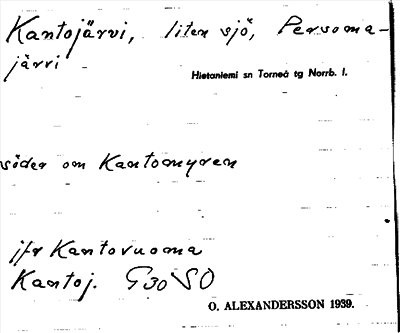 Kantojärvi, liten sjö, Persoma-
järvi
Hietaniemi sn Torneå tg Norrb. l.
söder om Kantomyren
jfr Kantovuoma
Kantoj. G30 SO
O. ALEXANDERSSON 1939.